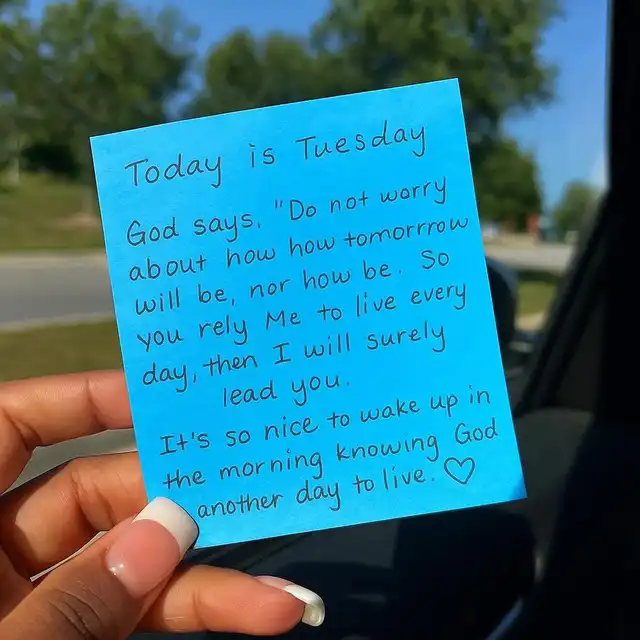 Today is Tuesday
God says, "Do not worry
about how how tomorrrow
will be, nor how be. So
you rely Me to live every
day, then I will surely
lead you.
It's so nice to wake up in
the morning knowing God
another day to live. ♡